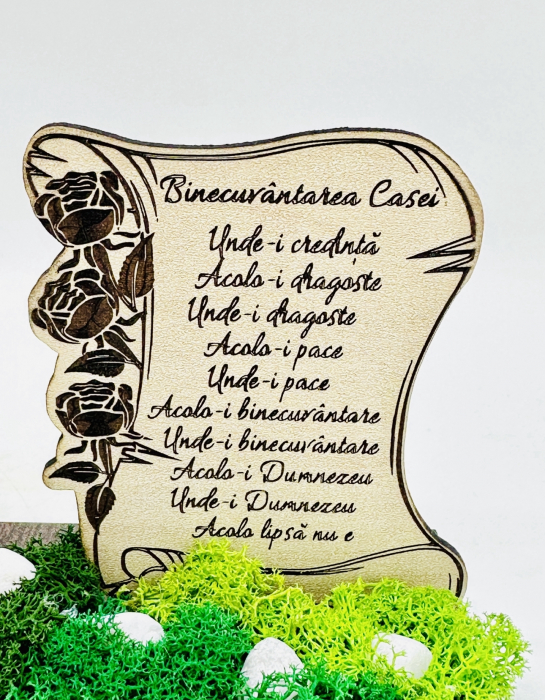 Binecuvântarea Casei
Unde-i credință
Acolo-i dragoste
Unde-i dragoste
Acolo-i pace
Unde-i pace
Acolo-i binecuvântare
Unde-i binecuvântare
Acolo-i Dumnezeu
Unde-i Dumnezeu
Acolo lipsă nu e